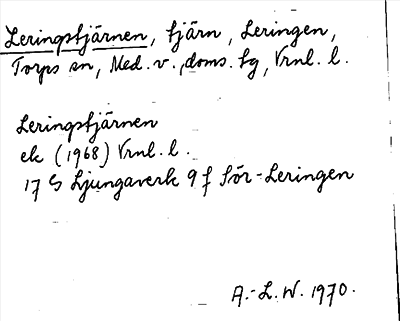 Leringstjärnen, tjärn, Leringen,
Torps sn, Med. v. doms. tg, Vrnl. l.
Leringstjärnen
ek (1968) Vrnl. l.
17 G Ljungaverk 9 f Sör-Leringen
A.-L.W. 1970.